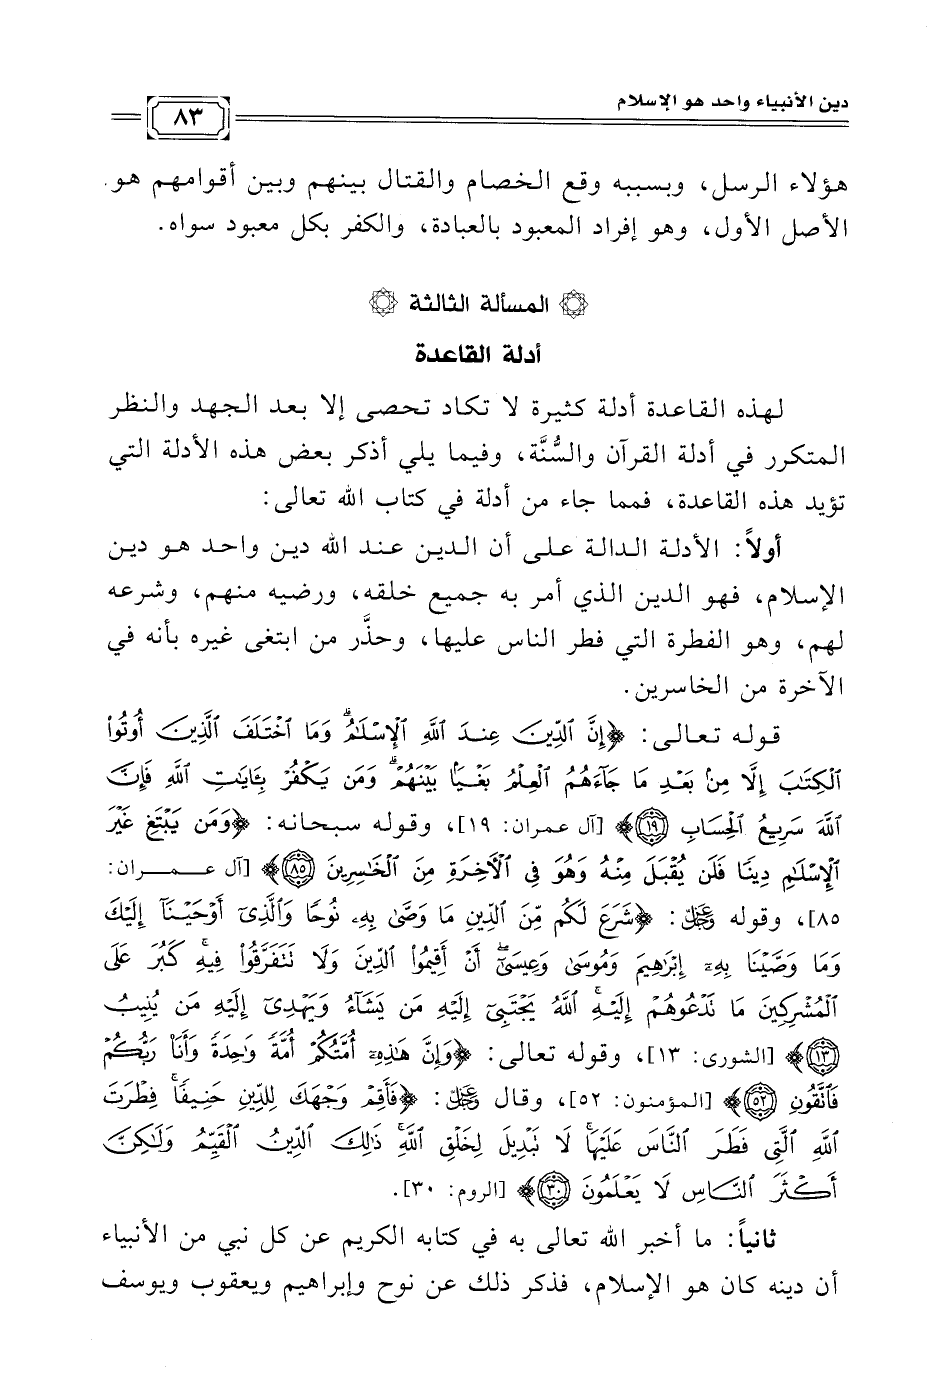 دين الأنبياء واحد هو الإسلام
٨٣
هؤلاء الرسل، وبسببه وقع الخصام والقتال بينهم وبين أقوامهم هو
الأصل الأول، وهو إفراد المعبود بالعبادة، والكفر بكل معبود سواه.
المسألة الثالثة
أدلة القاعدة
لهذه القاعدة أدلة كثيرة لا تكاد تحصى إلا بعد الجهد والنظر
المتكرر في أدلة القرآن والسُّنَّة، وفيما يلي أذكر بعض هذه الأدلة التي
تؤيد هذه القاعدة، فمما جاء من أدلة في كتاب الله تعالى:
أولاً: الأدلة الدالة على أن الدين عند الله دين واحد هو دين
الإسلام، فهو الدين الذي أمر به جميع خلقه، ورضيه منهم، وشرعه
لهم، وهو الفطرة التي فطر الناس عليها، وحذَّر من ابتغى غيره بأنه في
الآخرة من الخاسرين.
قوله تعالى: ﴿إِنَّ ٱلدِّينَ عِندَ ٱللَّهِ ٱلْإِسْلَٰمُ ۗ وَمَا ٱخْتَلَفَ ٱلَّذِينَ أُوتُوا۟
ٱلْكِتَٰبَ إِلَّا مِنۢ بَعْدِ مَا جَآءَهُمُ ٱلْعِلْمُ بَغْيًۢا بَيْنَهُمْ ۗ وَمَن يَكْفُرْ بِـَٔايَٰتِ ٱللَّهِ فَإِنَّ
ٱللَّهَ سَرِيعُ ٱلْحِسَابِ ١٩﴾ [آل عمران: ١٩]، وقوله سبحانه: ﴿وَمَن يَبْتَغِ غَيْرَ
ٱلْإِسْلَٰمِ دِينًا فَلَن يُقْبَلَ مِنْهُ وَهُوَ فِى ٱلْـَٔاخِرَةِ مِنَ ٱلْخَٰسِرِينَ ٨٥﴾ [آل عمران:
٨٥]، وقوله ﷿: ﴿شَرَعَ لَكُم مِّنَ ٱلدِّينِ مَا وَصَّىٰ بِهِۦ نُوحًا وَٱلَّذِىٓ أَوْحَيْنَآ إِلَيْكَ
وَمَا وَصَّيْنَا بِهِۦٓ إِبْرَٰهِيمَ وَمُوسَىٰ وَعِيسَىٰٓ ۖ أَنْ أَقِيمُوا۟ ٱلدِّينَ وَلَا تَتَفَرَّقُوا۟ فِيهِ ۚ كَبُرَ عَلَى
ٱلْمُشْرِكِينَ مَا تَدْعُوهُمْ إِلَيْهِ ۚ ٱللَّهُ يَجْتَبِىٓ إِلَيْهِ مَن يَشَآءُ وَيَهْدِىٓ إِلَيْهِ مَن يُنِيبُ
١٣﴾ [الشورى: ١٣]، وقوله تعالى: ﴿وَإِنَّ هَٰذِهِۦٓ أُمَّتُكُمْ أُمَّةً وَٰحِدَةً وَأَنَا۠ رَبُّكُمْ
فَٱتَّقُونِ ٥٢﴾ [المؤمنون: ٥٢]، وقال ﷿: ﴿فَأَقِمْ وَجْهَكَ لِلدِّينِ حَنِيفًا ۚ فِطْرَتَ
ٱللَّهِ ٱلَّتِى فَطَرَ ٱلنَّاسَ عَلَيْهَا ۚ لَا تَبْدِيلَ لِخَلْقِ ٱللَّهِ ۚ ذَٰلِكَ ٱلدِّينُ ٱلْقَيِّمُ وَلَٰكِنَّ
أَكْثَرَ ٱلنَّاسِ لَا يَعْلَمُونَ ٣٠﴾ [الروم: ٣٠].
ثانياً: ما أخبر الله تعالى به في كتابه الكريم عن كل نبي من الأنبياء
أن دينه كان هو الإسلام، فذكر ذلك عن نوح وإبراهيم ويعقوب ويوسف